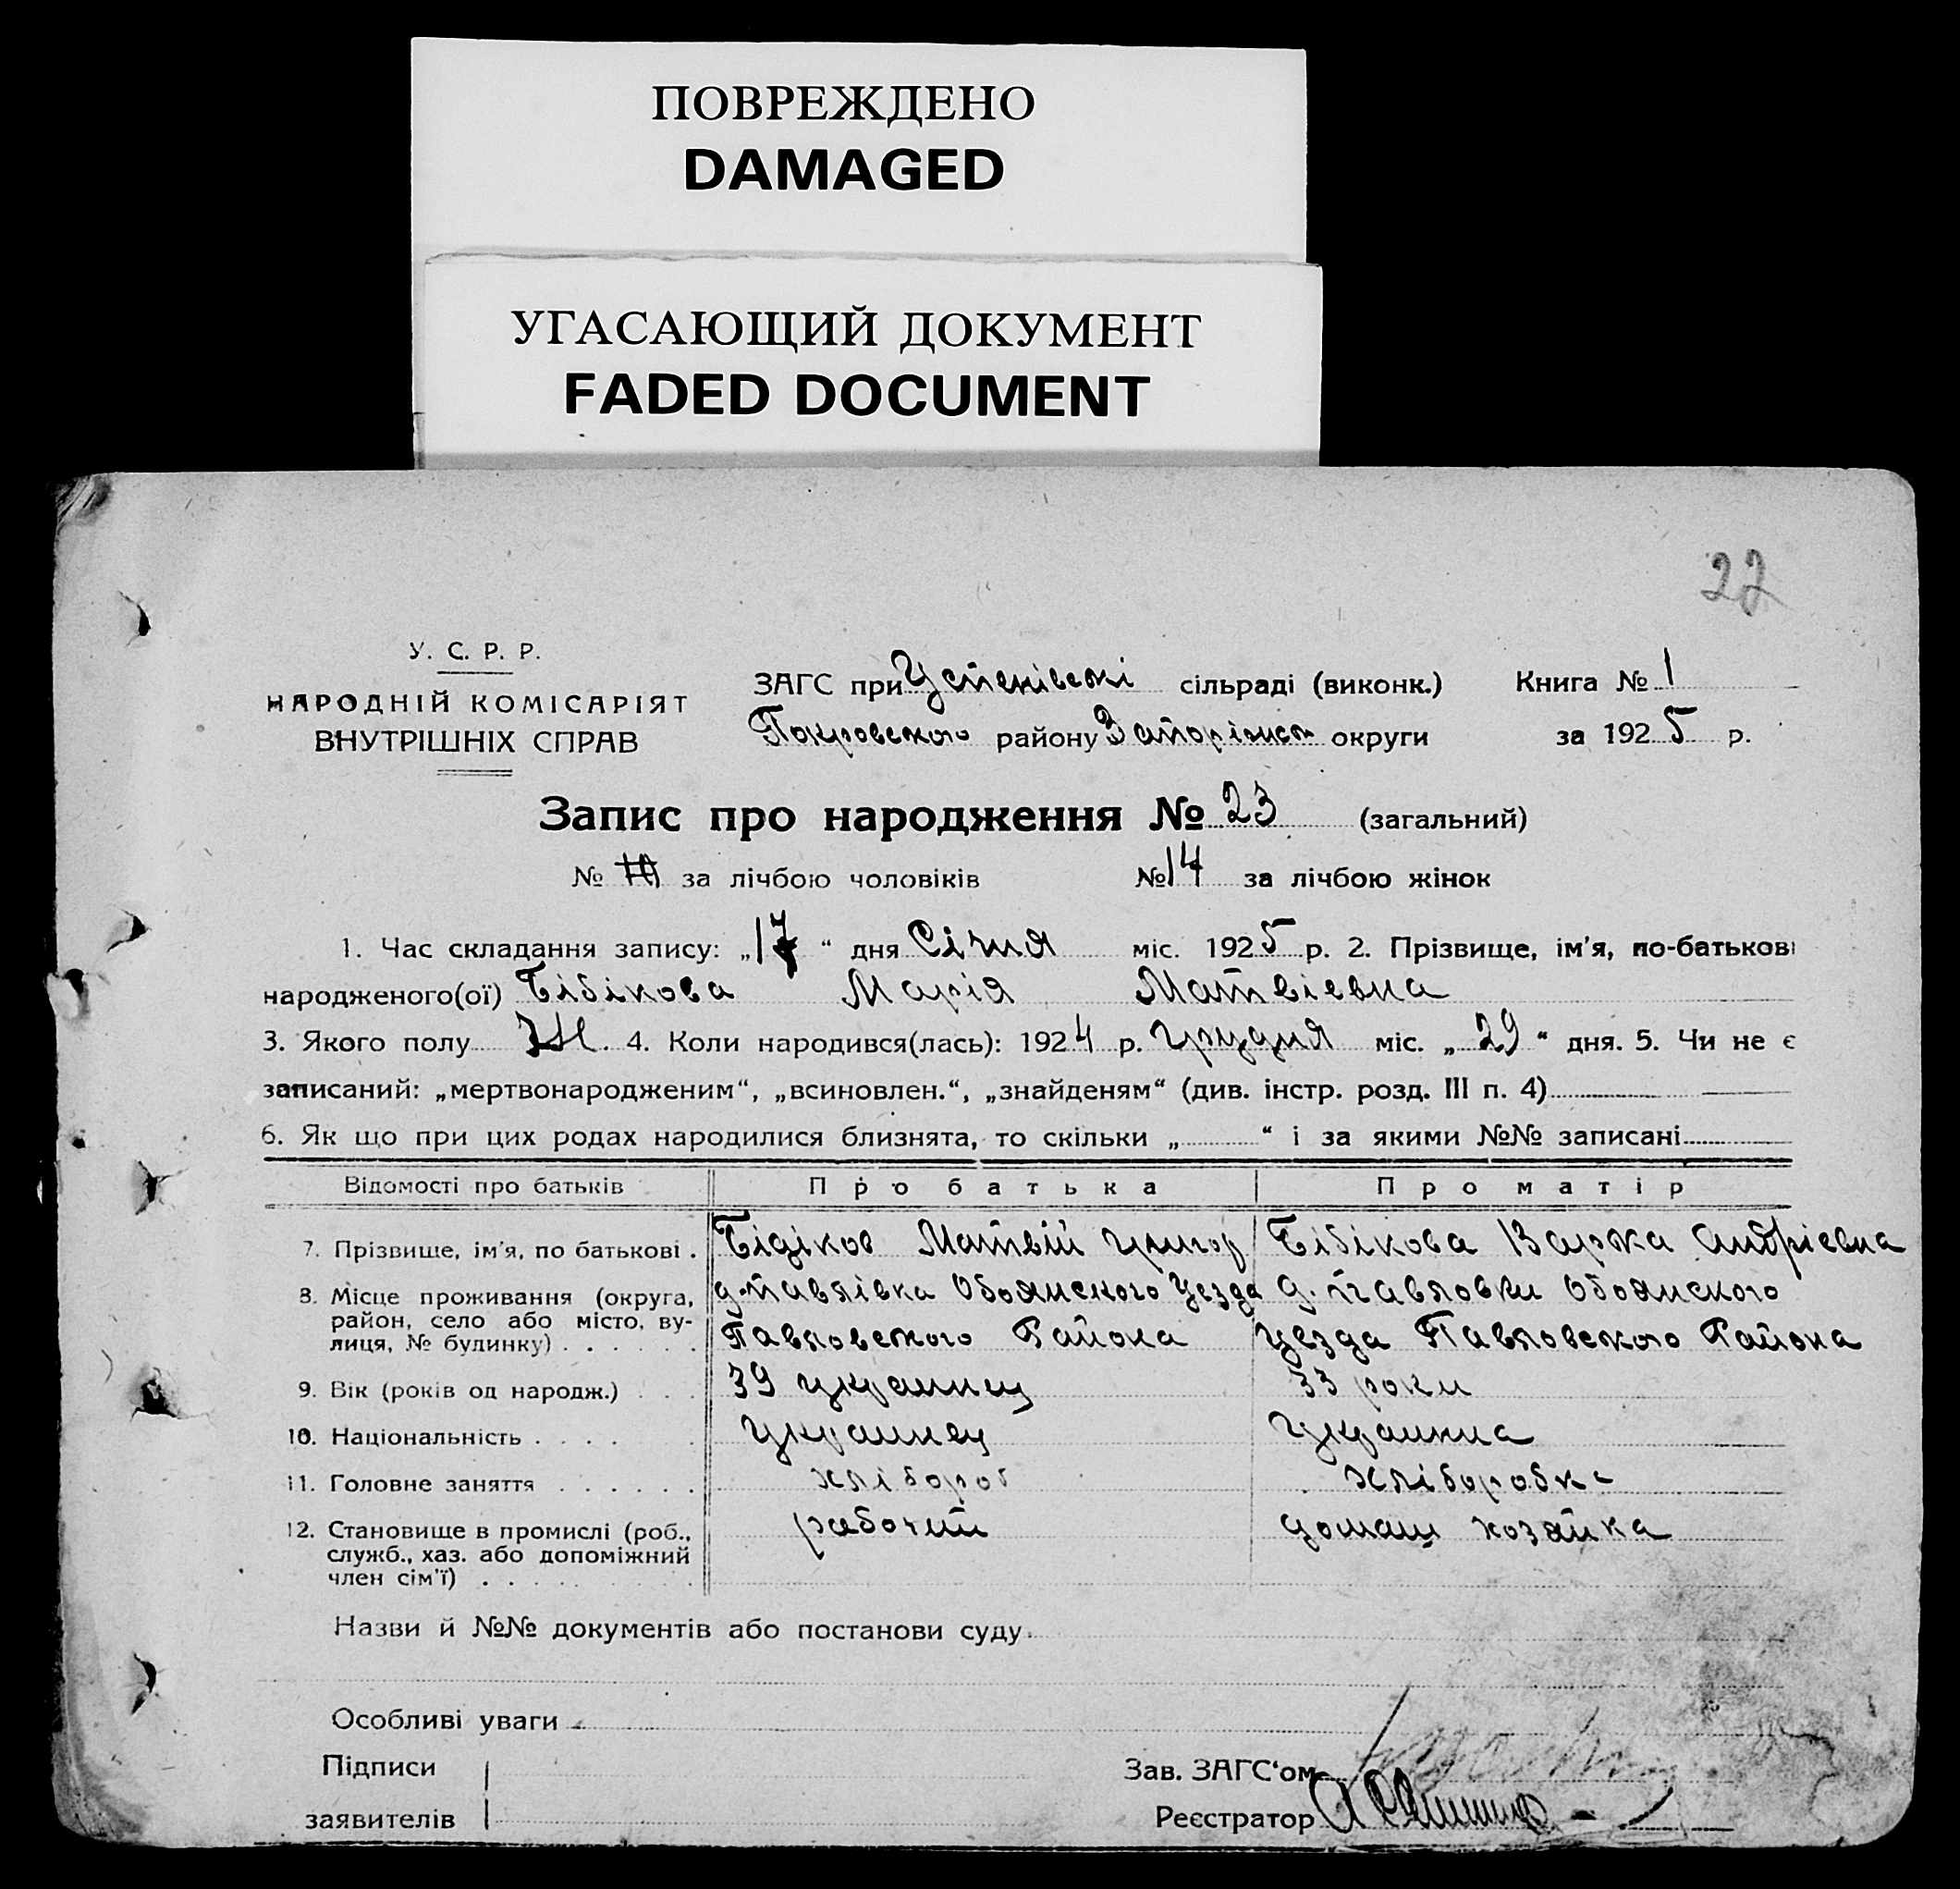 ПОВРЕЖДЕНО
DAMAGED
УГАСАЮЩИЙ ДОКУМЕНТ
FADED DOCUMENT
22
У. С. Р. Р.
НАРОДНІЙ КОМІСАРІЯТ
ВНУТРІШНІХ СПРАВ
ЗАГС при Успенівскі сільраді (виконк.) Книга № 1
Покровского району Запоріжск округи за 1925 р.
Запис про народження № 23 (загальний)
№ за лічбою чоловіків № 14 за лічбою жінок
1. Час складання запису: „17“ дня Січня міс. 1925 р. 2. Прізвище, ім'я, по-батькові
народженого(ої) Бібікова Марія Матвіевна
3. Якого полу Ж. 4. Коли народився(лась): 1924 р. Грудня міс. „29“ дня. 5. Чи не є
записаний: „мертвонародженим“, „всиновлен.“, „знайденям“ (див. інстр. розд. III п. 4)
6. Як що при цих родах народилися близнята, то скільки „ “ і за якими №№ записані
Відомості про батьків Про батька Про матір
7. Прізвище, ім'я, по батькові . Бідіков Матвій Григор Бібікова Варка Андріевна
8. Місце проживання (округа, район, село або місто, вулиця, № будинку) д. Павлівка Обоянского Уезда д. Павловки Обоянского
Павловского Района Уезда Павловского Района
9. Вік (років од народж.) 39 украинец 33 роки
10. Національність Украинец Украинка
11. Головне заняття хлібороб хліборобка
12. Становище в промислі (роб., служб., хаз. або допоміжний член сім'ї) рабочий домаш хозяйка
Назви й №№ документів або постанови суду
Особливі уваги
Підписи
заявителів
Зав. ЗАГС'ом
Реєстратор